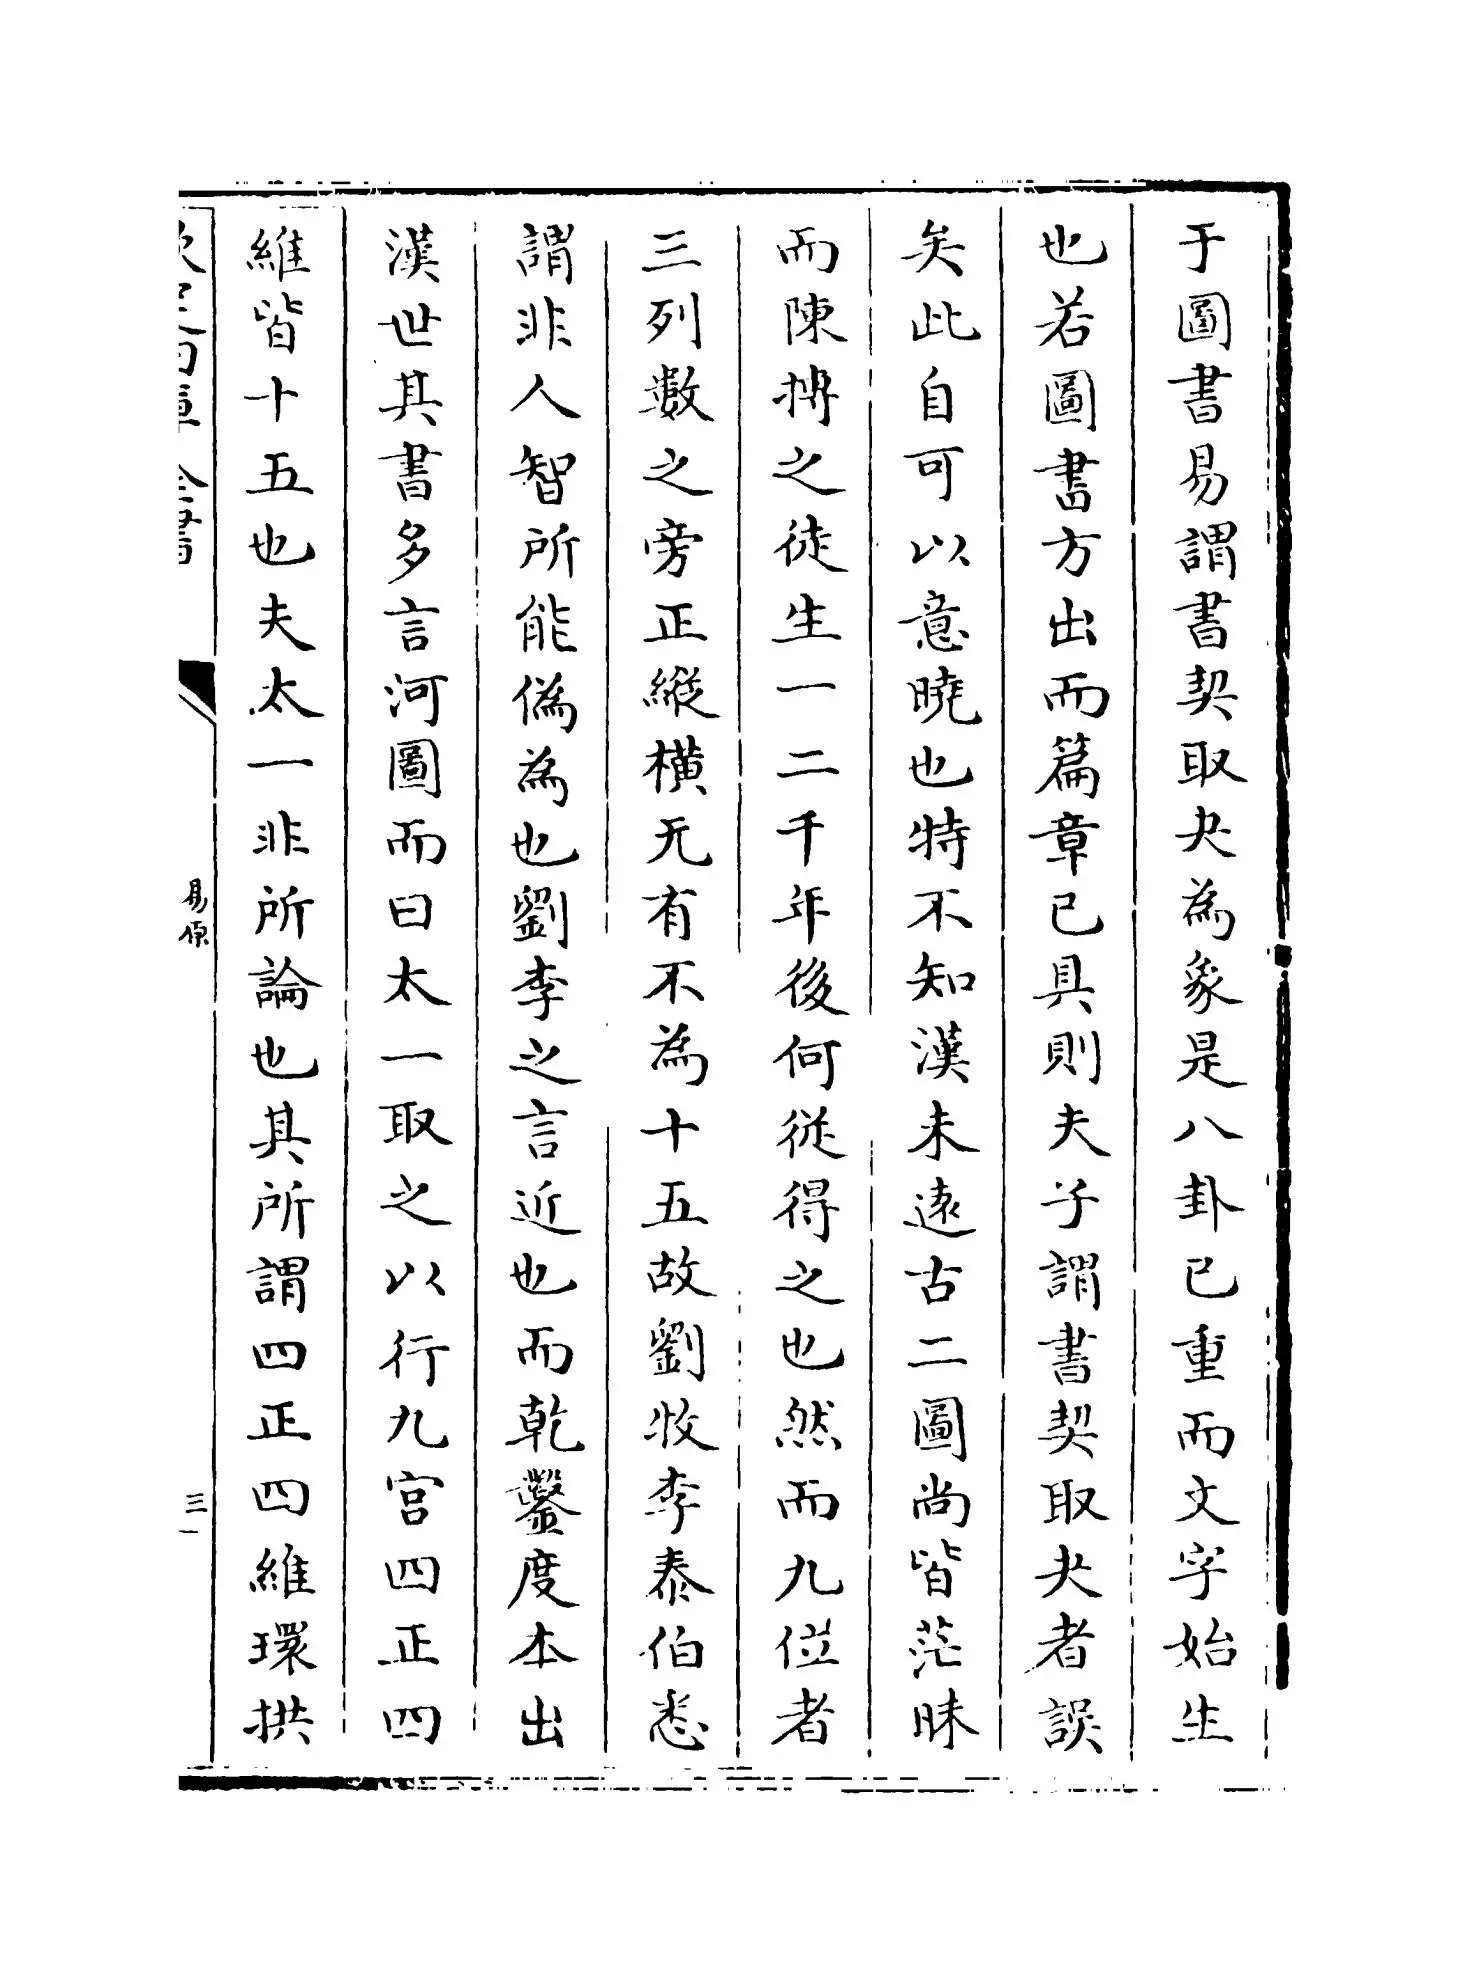 于圖書易謂書契取夬為象是八卦已重而文字始生
也若圖書方出而篇章已具則夫子謂書契取夬者誤
矣此自可以意曉也特不知漢未逺古二圖尚皆茫昧
而陳摶之徒生一二千年後何從得之也然而九位者
三列數之旁正縱橫无有不為十五故劉牧李泰伯悉
謂非人智所能偽為也劉李之言近也而乾鑿度本出
漢世其書多言河圖而曰太一取之以行九宫四正四
維皆十五也夫太一非所論也其所謂四正四維環拱
易原
三